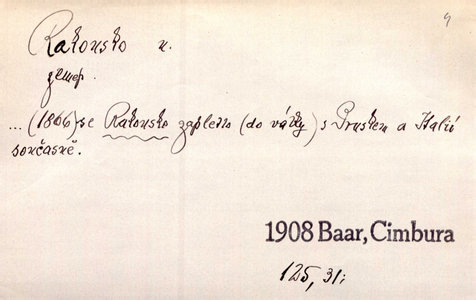 Rakousko n.
zeměp.
... (1866) se Rakousko zapletlo (do války) s Pruskem a Italií
současně.
1908 Baar, Cimbura
125, 31;